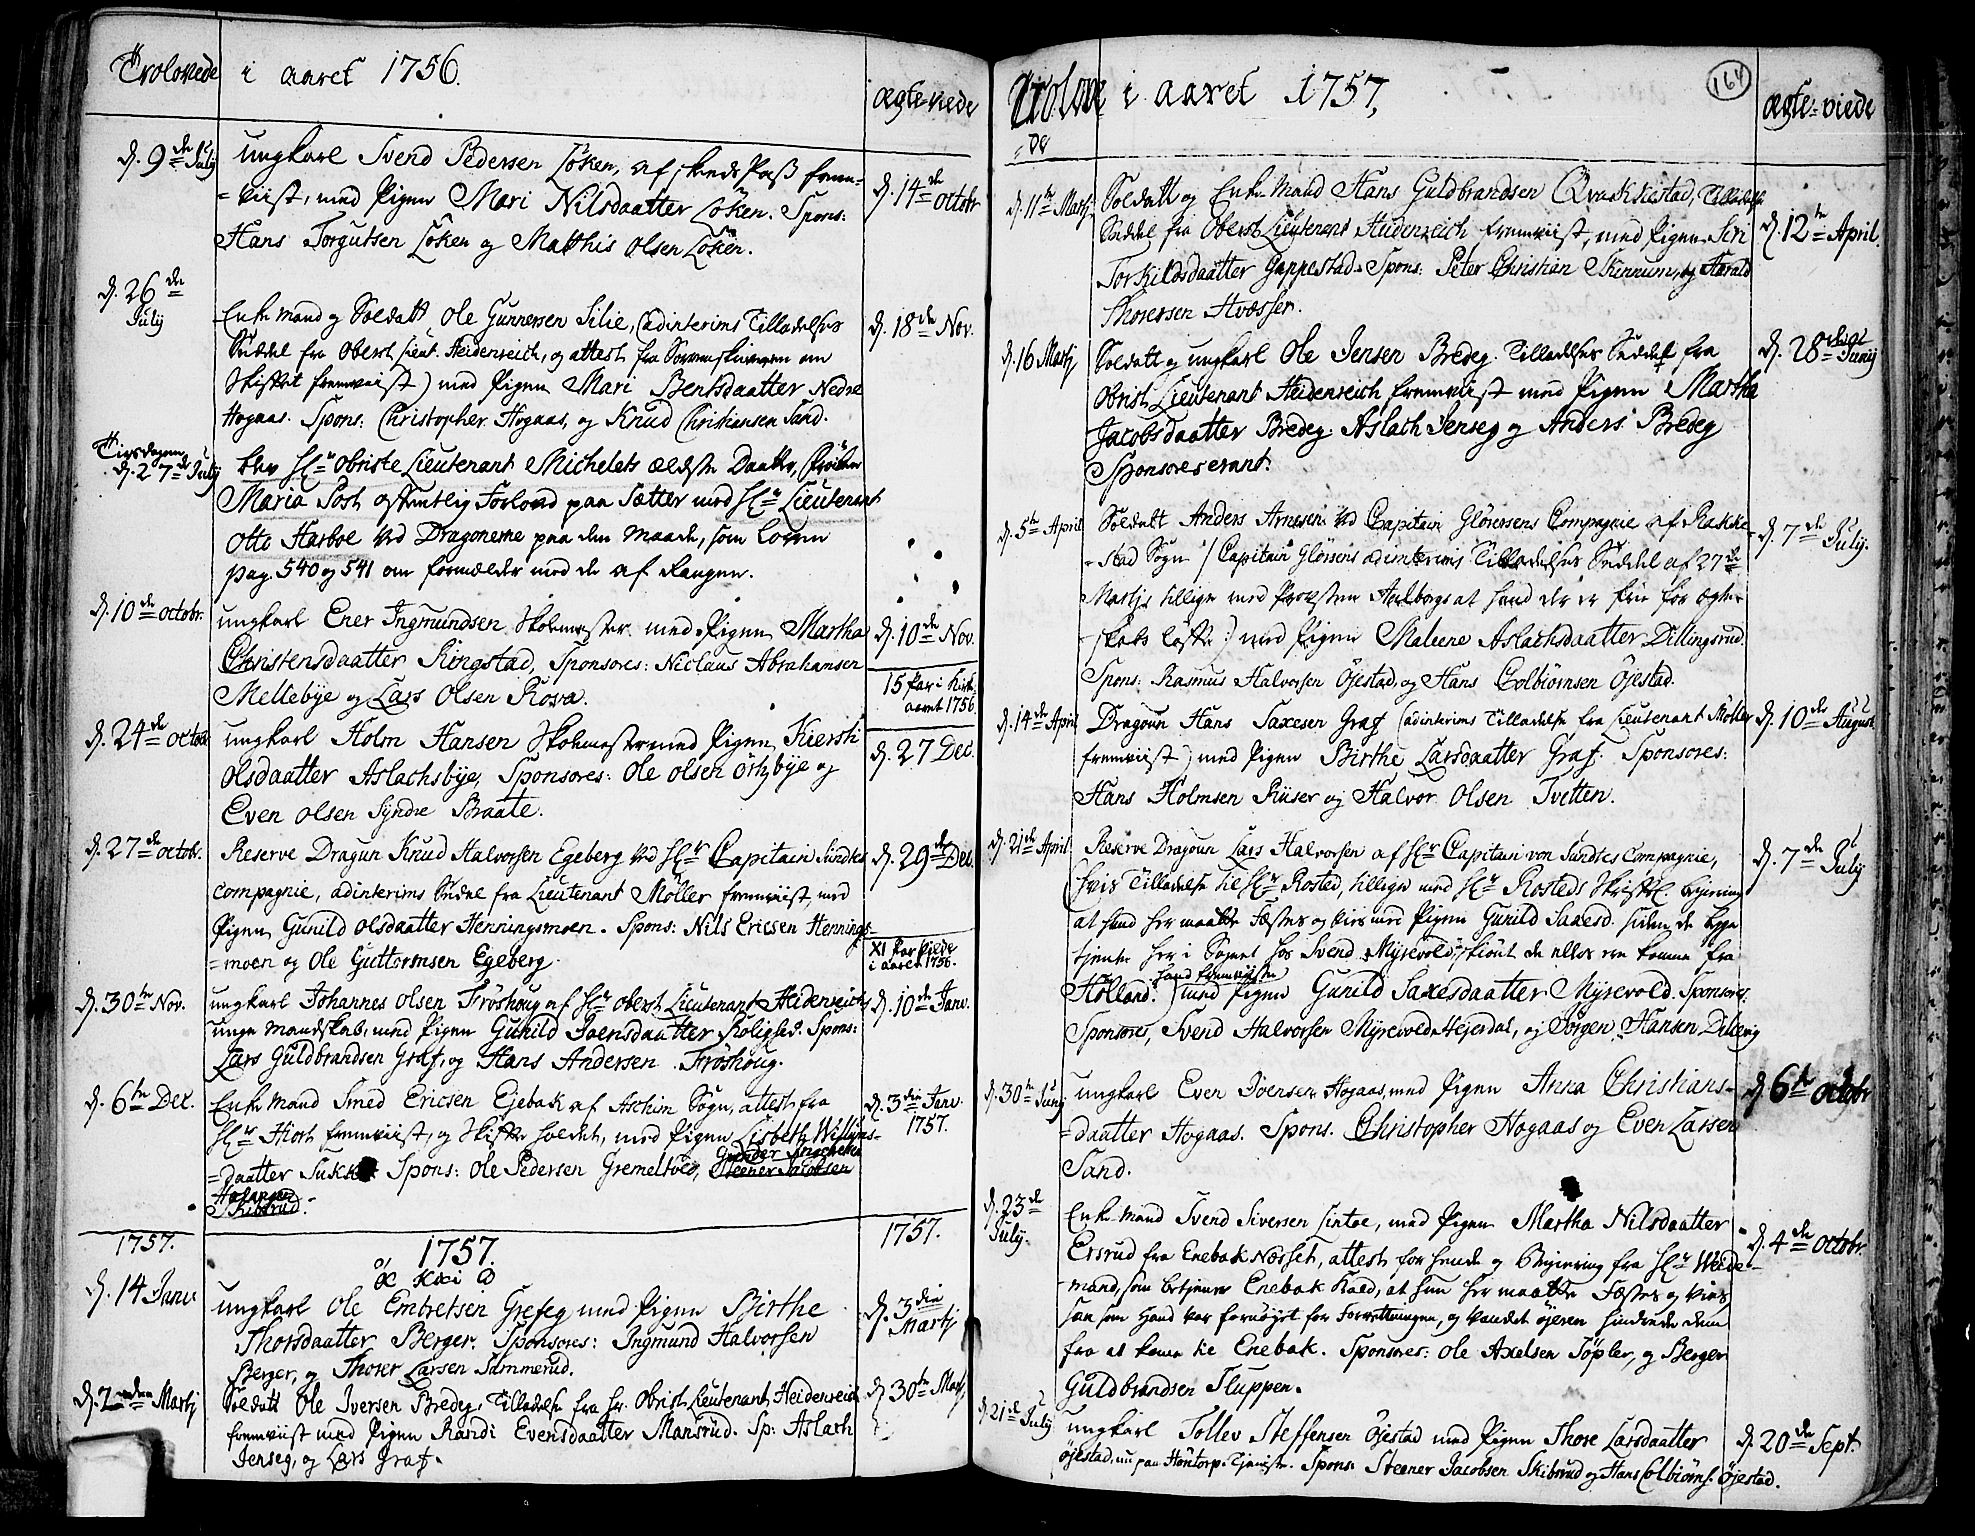 Trolovede i aaret 1756.
ægte-viede
d. 9de July ungkarl Svend Pedersen Løken, af skeds Pass frem-
=viist, med Pigen Mari Nilsdaatter Løken. Spons:
Hans Torgutsen Løken og Matthis Olsen Løken.
d. 14de octobr
d. 26de July Enke mand og Soldatt Ole Gunnersen Lilie, (adinterims Tilladelses
Seddel fra Oberst Lieut. Heidenreich, og attest fra Sorenskriveren om
Skiftet fremviist) med Pigen Mari Bentsdaatter Nedre
Hogaas. Spons: Christopher Hogaas, og Knud Christiansen Sand.
d. 18de Nov.
Tirsdagen
d. 27de July blev Hr Obriste Lieutenant Michelets ældste Daatter, Frøiken
Maria Sost offentlig Forlovd paa Sætter med Hr Lieutenant
Otto Harboe ved Dragonerne paa den Maade, som Loven
pag. 540 og 541 om formælder med de af Rangen.
d. 10de octobr. ungkarl Ener Ingmundsen Skolemester med Pigen Martha
Christensdaatter Ringstad, Sponsores: Niclaus Abrahansen
Meltebye og Lars Olsen Kova.
d. 10de Nov.
15 Par i Kirke
aaret 1756
d. 24de octobr ungkarl Holm Hansen Skolemester med Pigen Kiersti
Olsdaatter Aslachsbye, Sponsores: Ole Olsen Ørtzbye og
Even Olsen Syndre Braate.
d. 27 Dec.
d. 27de octobr. Reserve Dragun Knud Halvorsen Egeberg ved Hr Capitain Sundtes
Compagnie, adinterims Sedel fra Lieutenant Møller fremviist, med
Pigen Gunild Olsdaatter Henningsmoen. Spons: Nils Ericsen Hennings-
=moen og Ole Guttormsen Egeberg.
d. 29de Dec.
XI Par Viede
i aaret 1756.
d. 30te Nov. ungkarl Johannes Olsen Frøshoug af Hr Oberst Lieutenant Heidenreichs
unge Mandskab, med Pigen Gunild Joensdaatter Kolighed. Spons:
Lars Guldbrandsen Graf, og Hans Andersen Frøshoug.
d. 10de Janv.
d. 6te Dec. Enke Mand Smed Ericsen Ejebak af Aschim Sogn, attest fra
Hr Hiort fremviist, og Skifte holdet, med Pigen Lisbeth Willums-
=daatter Sukke Spons: Ole Pedersen Gremeltvet, Steener Jacobsen
Skibsrud.
d. 3die Janv.
1757.
1757.
1757.
1757.
d. 14 Janv. ungkarl Ole Embretsen Grefseg med Pigen Birthe
Thorsdaatter Berger. Sponsores: Ingmund Halvorsen
Berger, og Thorer Larsen Sammerud.
d. 3die Martij
d. 2den Martij Soldatt Ole Iversen Bredeg, Tilladelse fra Hr. Obrist Lieutenant Heidenreich
fremviist med Pigen Randi Evensdaatter Mansrud. Sp: Aslach
Jenseg, og Lars Graf.
d. 30te Martij
Trolove
=de i aaret 1757.
164
ægte-viede
d. 11te Martj. Soldatt og Enke-mand Hans Guldbrandsen Qvakkestad, Tilladelse
Seddel fra Oberst Lieutenant Heidenreich fremviist, med Pigen Siri
Torkildsdaatter Gappestad. Spons: Peter Christian Skinnum, og Harald
Thoresen Hvosser.
d. 12te April.
d. 16 Martij Soldatt og ungkarl Ole Jensen Bredeg. Tilladelses Seddel fra
Obrist Lieutenant Heidenreich fremviist med Pigen Martha
Jacobsdaatter Bredeg. Aslach Jenseg og Anders Bredeg
Sponsores erant.
d. 28 Junij
d. 5te April Soldatt Anders Arnesen ved Capitain Glørersens Compagnie af Rakke-
=stad Sogn /: Capitain Glørsens adinterims Tilladelses Seddel af 27de
Martij tillige med Provsten Aalborgs at hand der er frie for ægte-
=skabs løfte :/ med Pigen Maleene Aslachsdaatter Dillingsrud.
Spons: Rasmus Halvorsen Øjestad, og Hans Colbiørnsen Øjestad.
d. 7de July.
d. 14de April Dragoun Hans Saxesen Graf (adinterims Tilladelse fra Lieutenant Møller
fremviist) med Pigen Birthe Larsdaatter Graf. Sponsores:
Hans Holmsen Kiiser og Halvor Olsen Tvetten.
d. 10de August.
d. 21de April. Reserve Dragoun Lars Halvorsen af Hr Capitain von Sundtes Compagnie,
(hvis Tilladelse til Hr Rosted, tillige med Hr Rosteds Skriftl. begiering
at hand her maatte Fæstes og vies med Pigen Gunild Saxesd. siden de begge
tjente her i Sognet hos Svend Myrevold, skiønt de ellers ere komne fra
Høland. hand fremviiste) med Pigen Gunild Saxesdaatter Myrevold. Sponsores.
Sponsores, Svend Halvorsen Myrevold Hejerdal, og Jørgen Hansen Dileng
d. 7de July
d. 30te Junij ungkarl Even Joensen Hogaas, med Pigen Anna Christians-
=daatter Hogaas. Spons. Christopher Hogaas og Even Larsen
Sand.
d. 6te octobr
d. 23de July. Enke Mand Svend Siversen Lintoe, med Pigen Martha Nilsdaatter
Ersrud fra Enebak Nosset, attest for hende og Begiering fra Hr Weide-
mand, som betjener Enebak Kald, at hun her maatte Fæstes og vies
saasom Hand var fornøyet for Forretningen, og Vandet øjeren hindrede dem
fra at komme til Enebak. Sponsores: Ole Axelsen Tøpler, og Berger
Guldbrandsen Fluppen.
d. 4de octobr.
d. 21de July ungkarl Tollev Steffensen Øjestad med Pigen Thore Larsdaatter
Øjestad, nu paa Hontorp tjeniste. Spons: Steener Jacobsen Skibsrud og Hans Colbiørns. Øjestad.
d. 20de Sept.